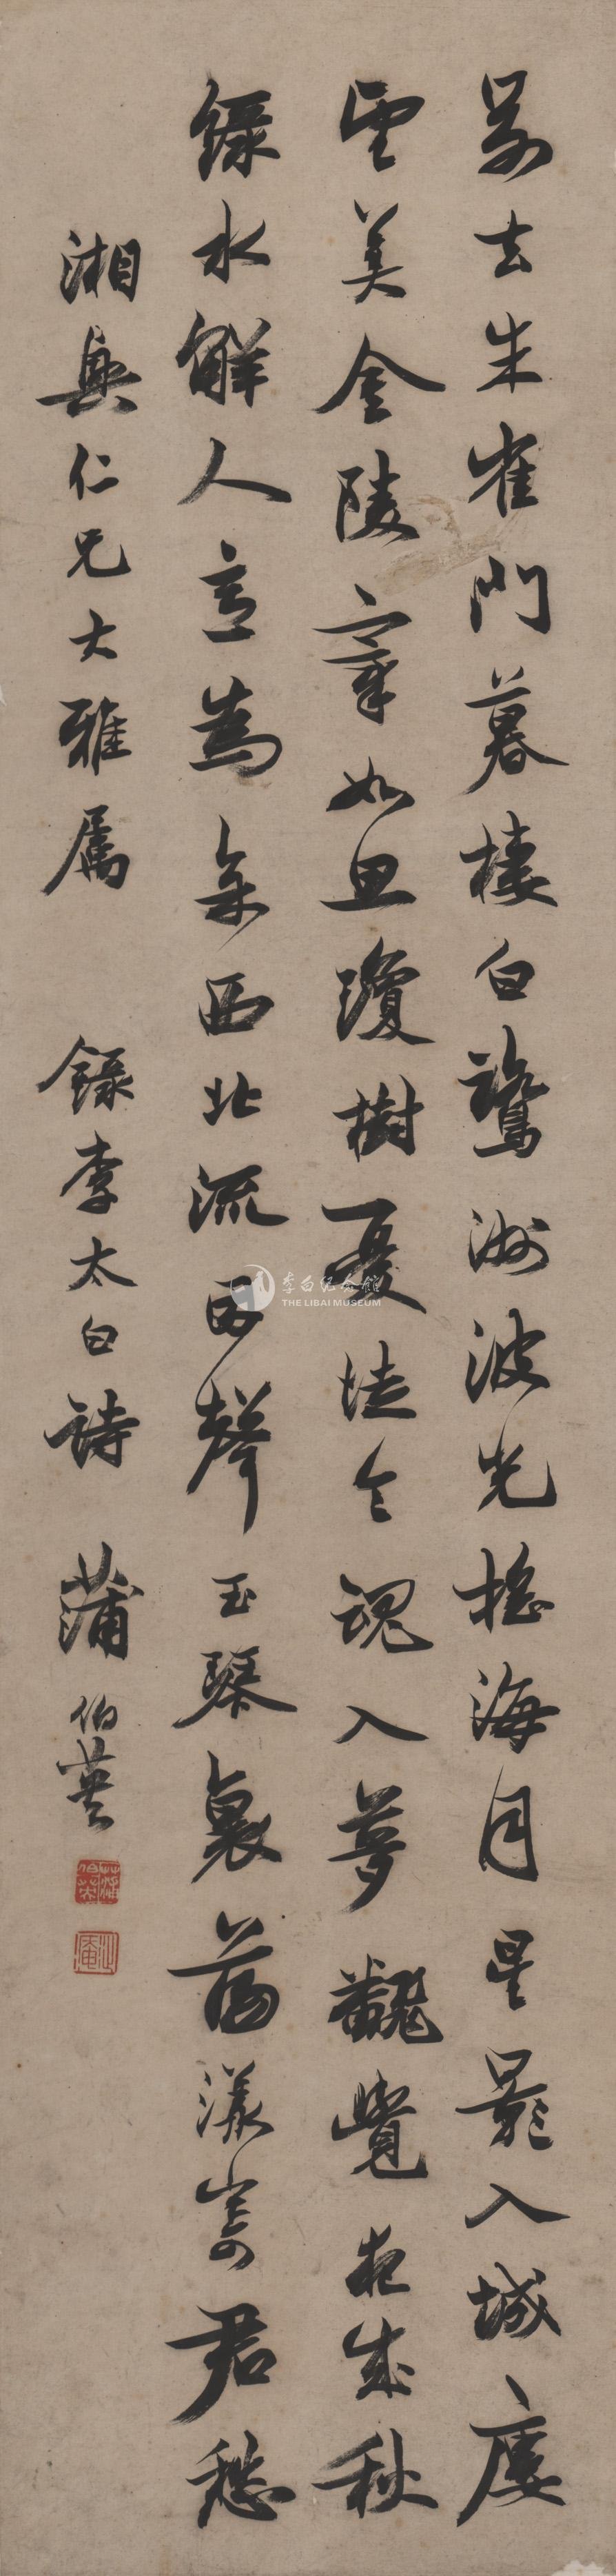 别去朱雀門暮棲白鷺洲波光搖海月星影入城樓
望美金陵宰如思瓊樹憂徒令魂入夢翻覺夜成秋
綠水解人意為余西北流因聲玉琴裏蕩漾寄君愁
湘與仁兄大雅屬 錄李太白詩 蒲伯英
蒲伯英
李白纪念馆
THE LIBAI MUSEUM